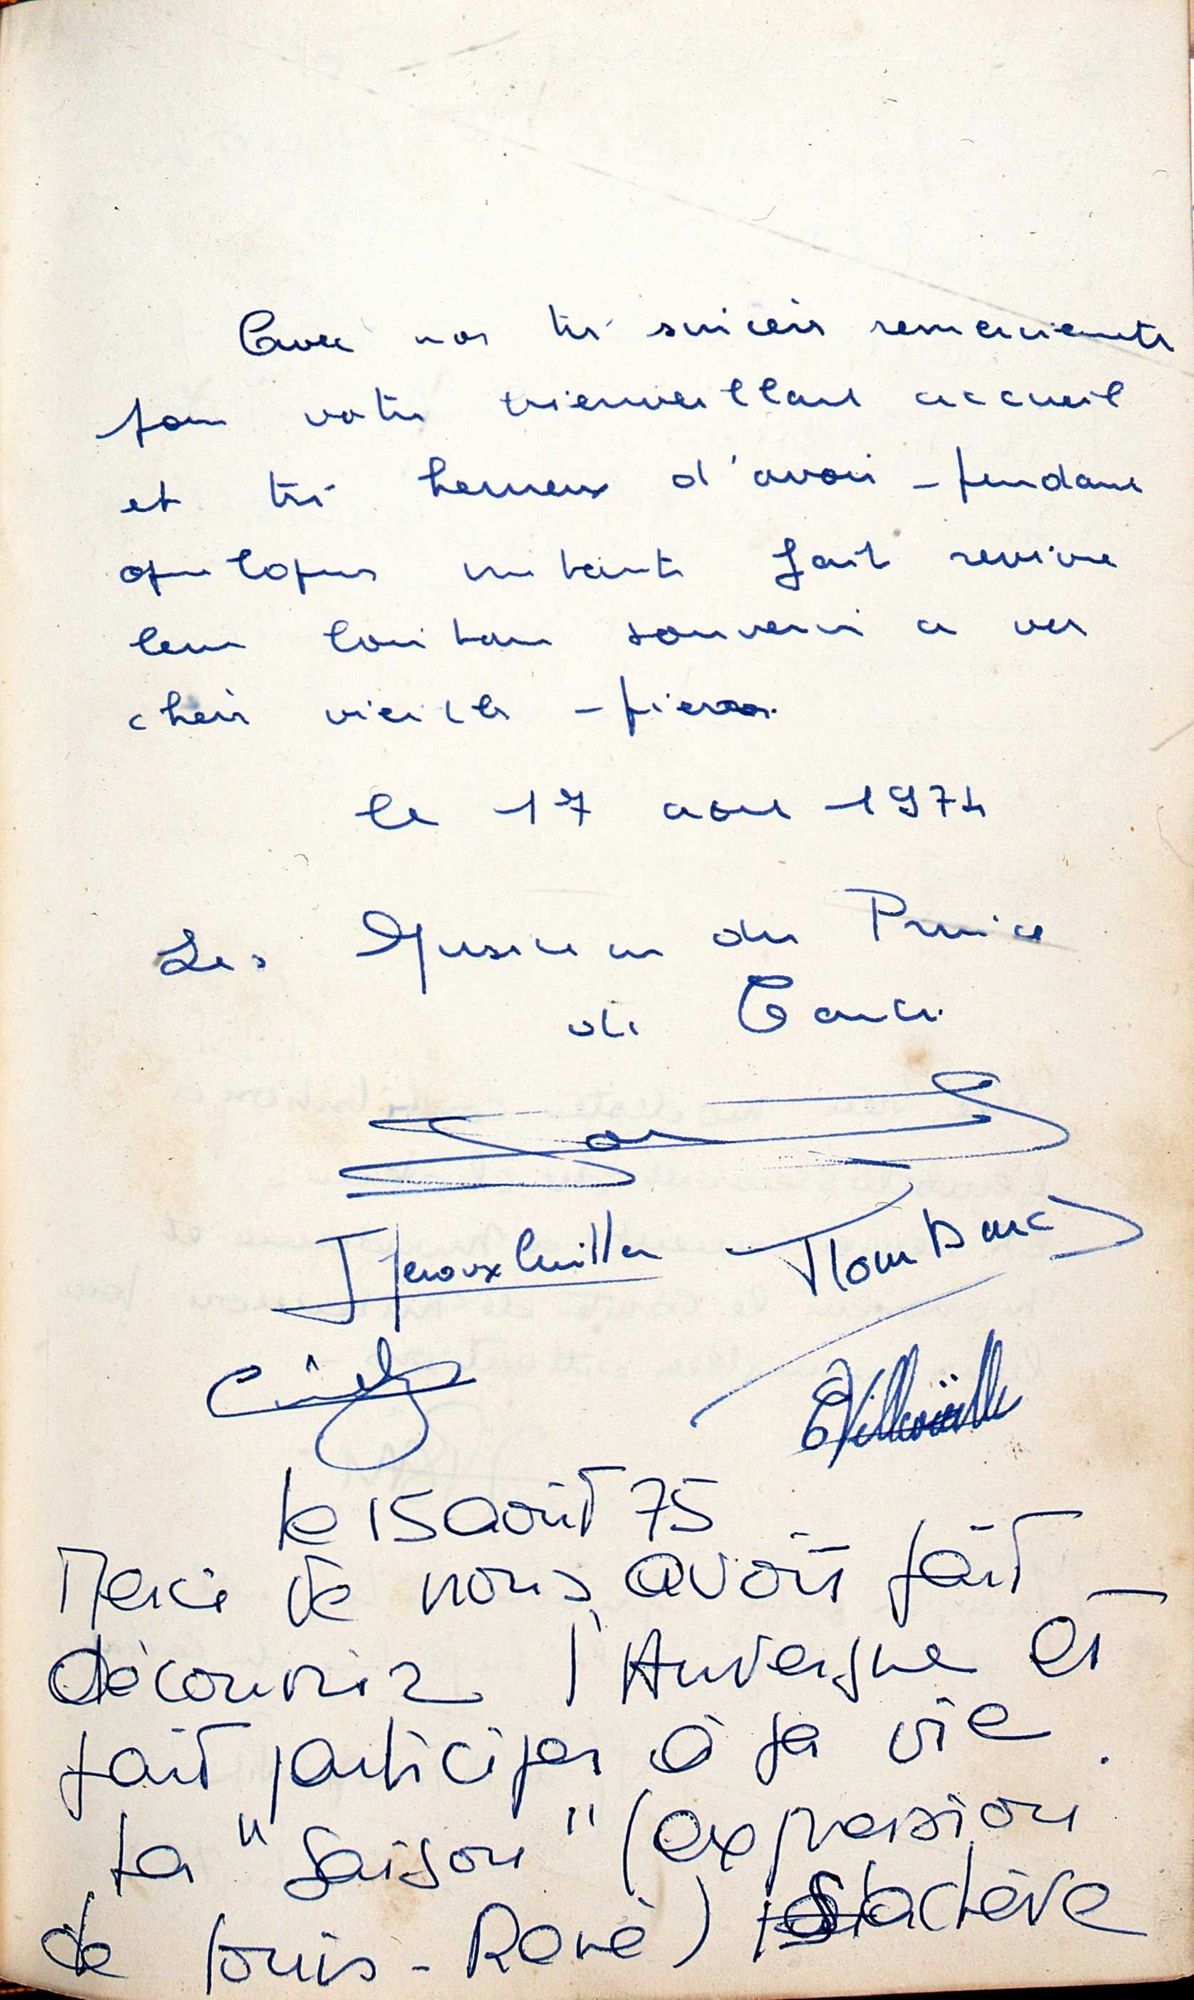 Avec nos très sincères remerciements
pour votre bienveillant accueil
et très heureux d'avoir pendant
quelques instants fait revivre
leur lointain souvenir à ces
chères vieilles pierres.
le 17 août 1974
Les Musiciens du Prince
de Conti.
le 15 août 75
Merci de nous avoir fait
découvrir l'Auvergne et
fait participer à sa vie.
La "saison" (expression
de Louis-René) s'achève